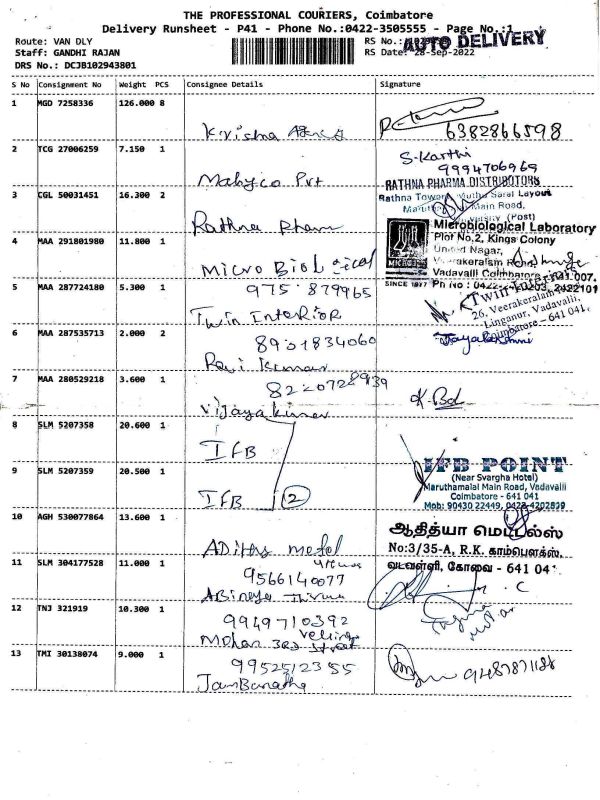 THE PROFESSIONAL COURIERS, Coimbatore
Delivery Runsheet - P41 - Phone No.:0422-3505555 - Page No.:1
Route: VAN DLY
Staff: GANDHI RAJAN
DRS No.: DCJB102943801
RS No.:
RS Date: 28-Sep-2022
AUTO DELIVERY
S No Consignment No Weight PCS Consignee Details Signature
1 MGD 7258336 126.000 8
Krishna
6382866598
2 TCG 27006259 7.150 1
Mahyco Pvt
S.Karthi
9994706969
3 CGL 50031451 16.300 2
Rathna Pharm
RATHNA PHARMA DISTRIBUTORS
Rathna Tower, Layout
Main Road,
(Post)
4 MAA 291801980 11.800 1
Micro Biological
Microbiological Laboratory
Plot No.2, Kings Colony
United Nagar,
Veerakeralam Road
Vadavalli Coimbatore 641 007.
SINCE 1977 Ph No : 0422-
5 MAA 287724180 5.300 1
975 879965
Twin Interior
Twin
26, Veerakeralam
Linganur, Vadavalli,
Coimbatore - 641 041.
6 MAA 287535713 2.000 2
8901834060
Ravi Kumar
Jayalakshmi
7 MAA 280529218 3.600 1
Vijayakumar
8 SLM 5207358 20.600 1
IFB
9 SLM 5207359 20.500 1
IFB 2
IFB POINT
(Near Svargha Hotel)
Maruthamalai Main Road, Vadavalli
Coimbatore - 641 041
Mob: 90430 22449, 0422-4202829
10 AGH 530077864 13.600 1
metal
ஆதித்யா மெட்டல்ஸ்
No:3/35-A, R.K. காம்பளக்ஸ்,
வடவள்ளி, கோவை - 641 04
11 SLM 304177528 11.000 1
9566140077
C
12 TNJ 321919 10.300 1
9949710392
Mohan 3rd street
13 TMI 30138074 9.000 1
9952512355
9487871188